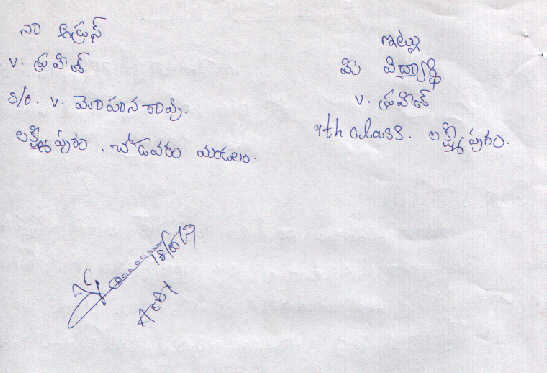 నా అడ్రస్
V. భరత్
S/o. V. మోహన రావు.
లక్ష్మీ పురం. చోడవరం మండలం.
ఇట్లు
మీ విద్యార్థి
V. భరత్
9th class. లక్ష్మీ పురం.